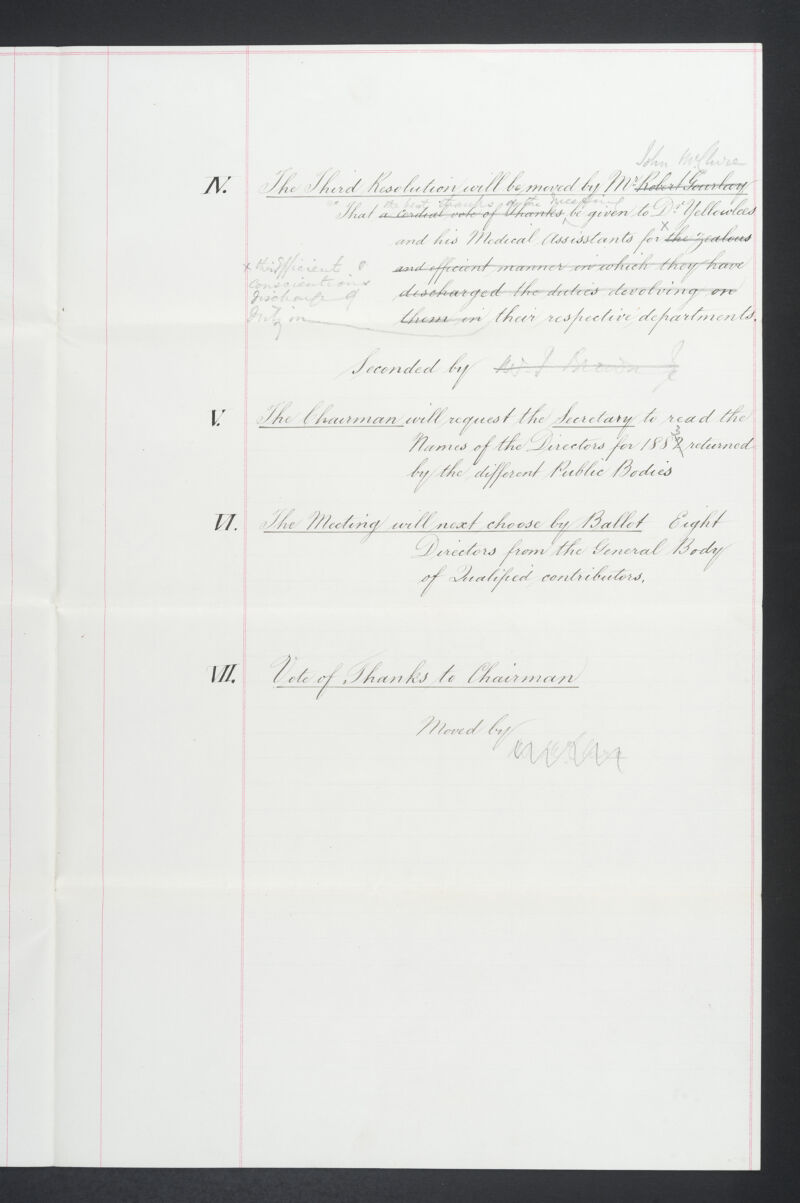 John McClure
IV. The Third Resolution will be moved by Mr Robert Gourlay
the best thanks of the meeting
"That a cordial vote of thanks, be given to Dr Yellowlees
and his Medical Assisstants for x the zealous
and efficient manner in which they have
discharged the duties devolving on
them in their respective departments.
x their efficient &
conscientious
discharge of
duty in
Seconded by Brown Jr
V. The Chairman will request the Secretary to read the
Names of the Directors for 1883 returned
by the different Public Bodies
VI. The Meeting will next choose by Ballot Eight
Directors from the General Body
of Qualified contributors.
VII. Vote of Thanks to Chairman
Moved by